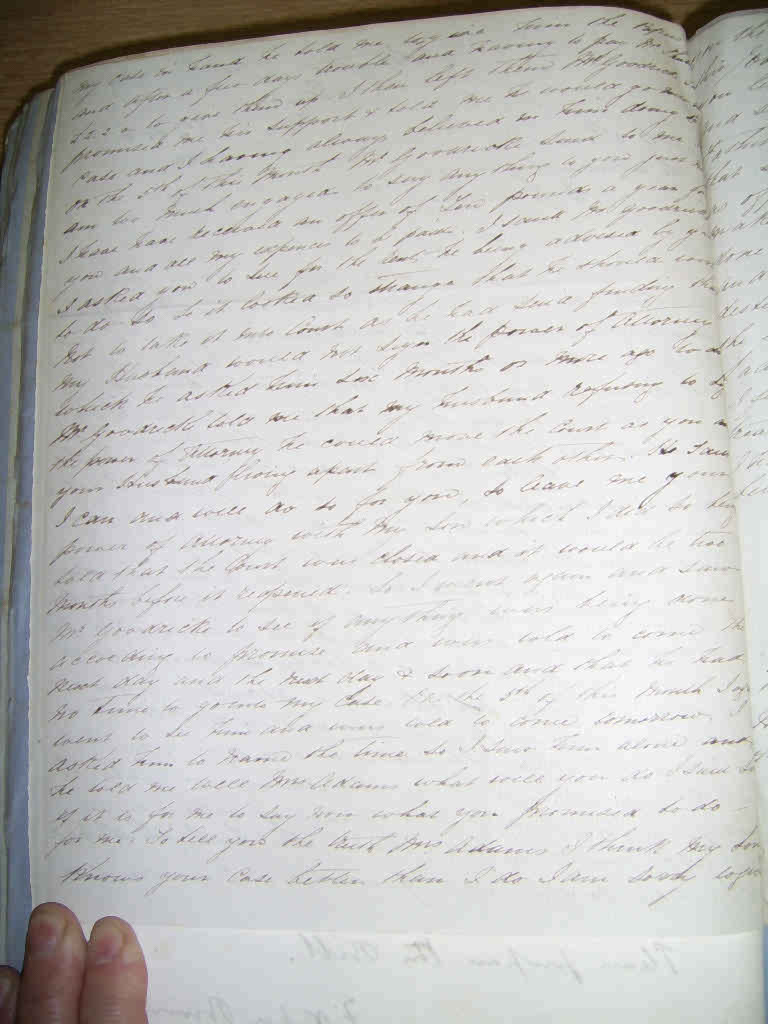 my case in hand he told me to give him the
and after a few days trouble and having to pay
£2.2.0 to give them up. I then left them Mr Goodricke
promised me his support & told me he would go on
case and I having always believed in him doing so
on the 5th of this Month Mr Goodricke said to me
am too much engaged to say anything to you just
I have have received an offer of Ten pounds a year for
you and all my expences to be paid. I said Mr Goodricke
I asked you to see for the best he being advised by you
to do so so it looked so strange that he should
not to take it into Court as he had said finding that
my Husband would not sign the power of Attorney
which he asked him six months or more ago to
Mr Goodricke told me that my husband refusing to
the power of Attorney he could move the Court as you
your Husband living apart from each other. He said
I can and will do so for you, so leave me your
power of Attorney with my son which I did so being
told that the Court was closed and it would be two
months before it reopened. So I went again and saw
Mr Goodricke to see if anything was being done
according to promise and was told to come the
next day and the next day & soon and that he had
no time to go into my Case the 5th of this Month I
went to see him and was told to come tomorrow, I
asked him to name the time so I saw him alone and
he told me well Mrs Adams what will you do I said
if it is for me to say now what you promised to do
for me. To tell you the truth Mrs Adams I think my son
knows your Case better than I do I am sorry to
Please the Bill.